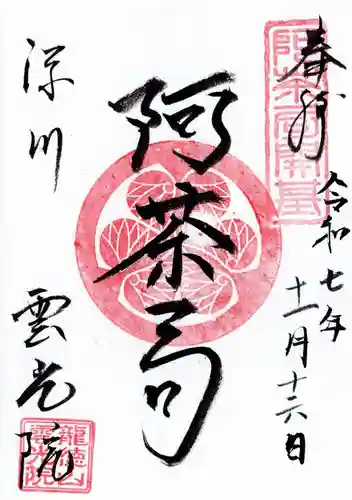 奉拝
令和七年
十一月十六日
阿茶局
深川
雲光院
阿茶局開基
龍徳山
雲光院